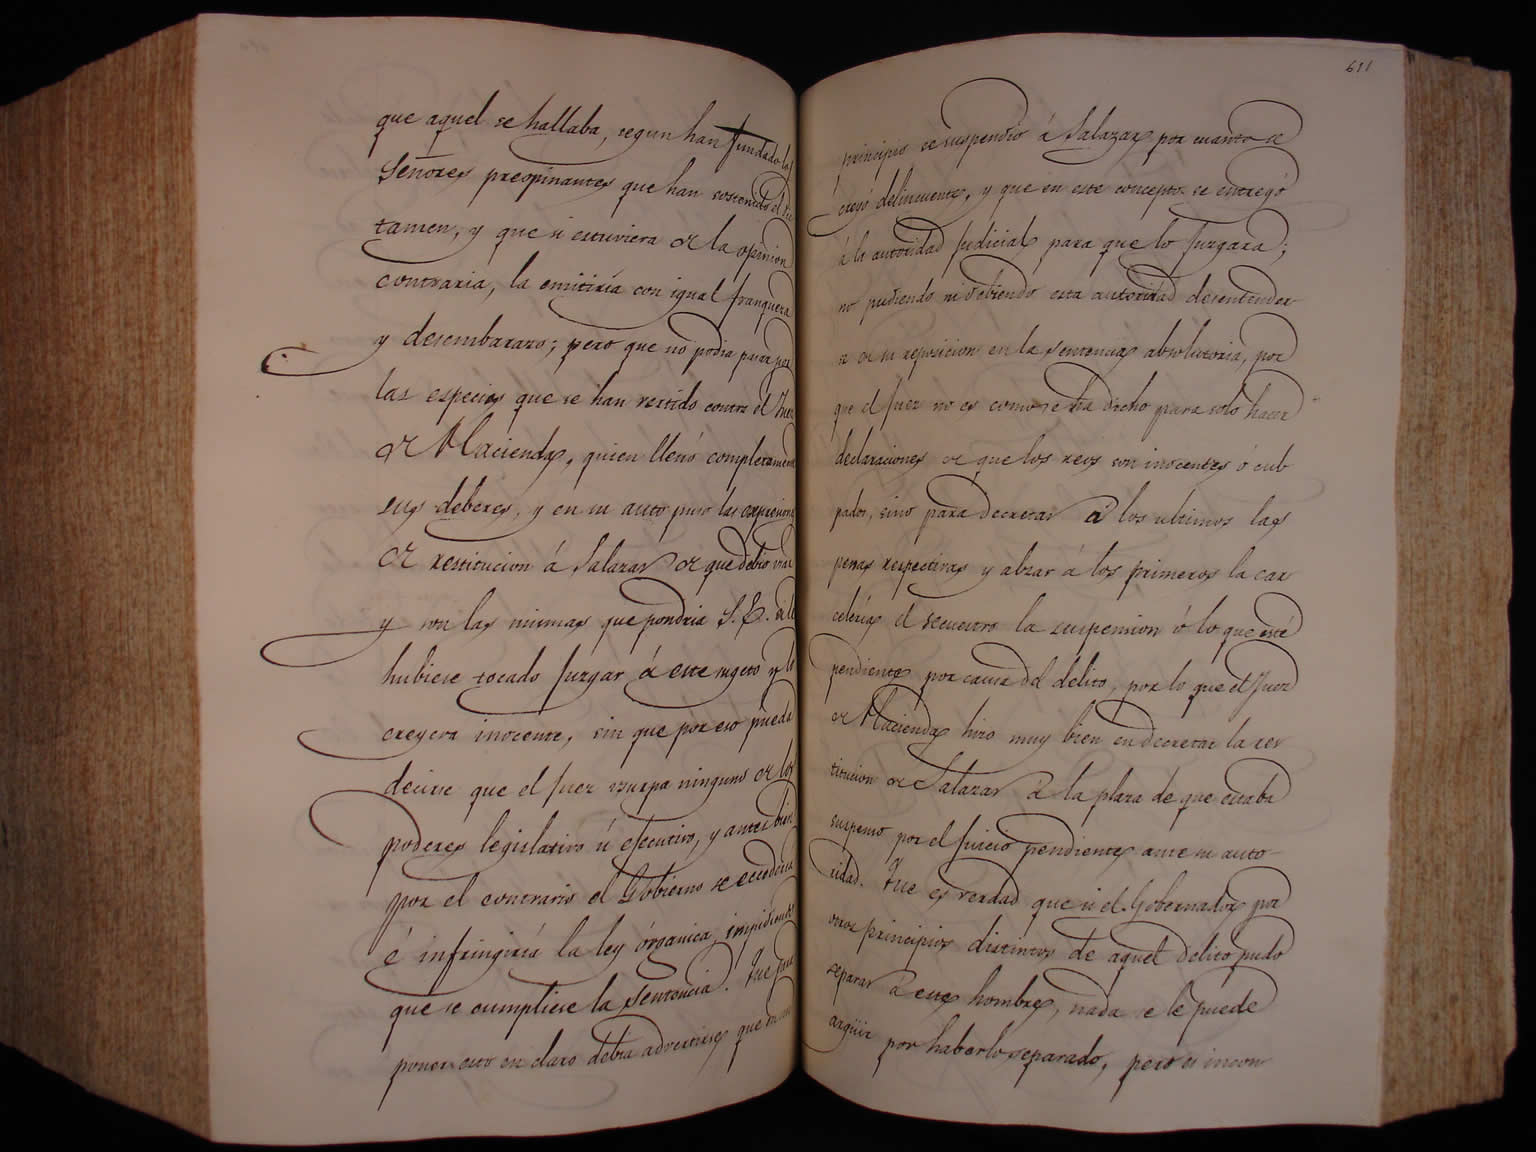 que aquel se hallaba, segun han fundado los
Señores preopinantes que han sostenido el dic
tamen, y que si estuviera de la opinion
contraria, la emitiría con igual franqueza
y desembarazo; pero que no podia pasar por
las especies que se han vertido contra el Juez
de Hacienda, quien llenó completamente
sus deberes, y en su auto puso las expresiones
de restitucion á Salazar de que debió usar
y son las mismas que pondria S. E. si le
hubiese tocado juzgar á este sugeto y lo
creyera inocente, sin que por eso pueda
decirse que el Juez usurpa ninguno de los
poderes legislativo ú efecutivo, y antes bien
por el contrario el Gobierno se excederia
é infringiría la ley órganica, impidiendo
que se cumpliese la sentencia. Que para
poner esto en claro debia advertirse que en
611
principio se suspendió á Salazar por cuanto se
creyó delincuente, y que en este concepto se entregó
á la autoridad Judicial para que lo Juzgara;
no pudiendo ni debiendo esta autoridad desentender
se de su reposicion en la sentencia absolutoria, por
que el Juez no es como se ha dicho para solo hacer
declaraciones de que los reos son inocentes ó cul
pados, sino para decretar a los ultimos las
penas respectivas y alzar á los primeros la car
celería el secuestro la suspension ó lo que esté
pendiente por causa del delito, por lo que el Juez
de Hacienda hizo muy bien en decretar la res
titucion de Salazar a la plaza de que estaba
suspenso por el Juicio pendiente ante su auto-
ridad. Que es verdad que si el Gobernador por
otros principios distintos de aquel delito pudo
separar a este hombre, nada se le puede
argüir por haberlo separado, pero si incon